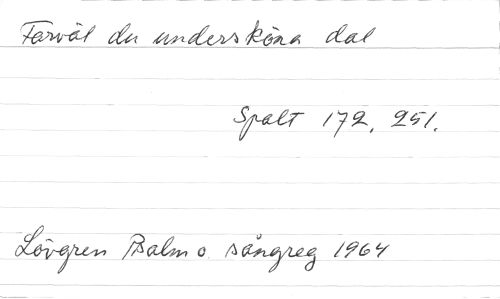 Farväl du undersköna dal
Spalt 172, 251.
Lövgren Psalm o sångreg 1964